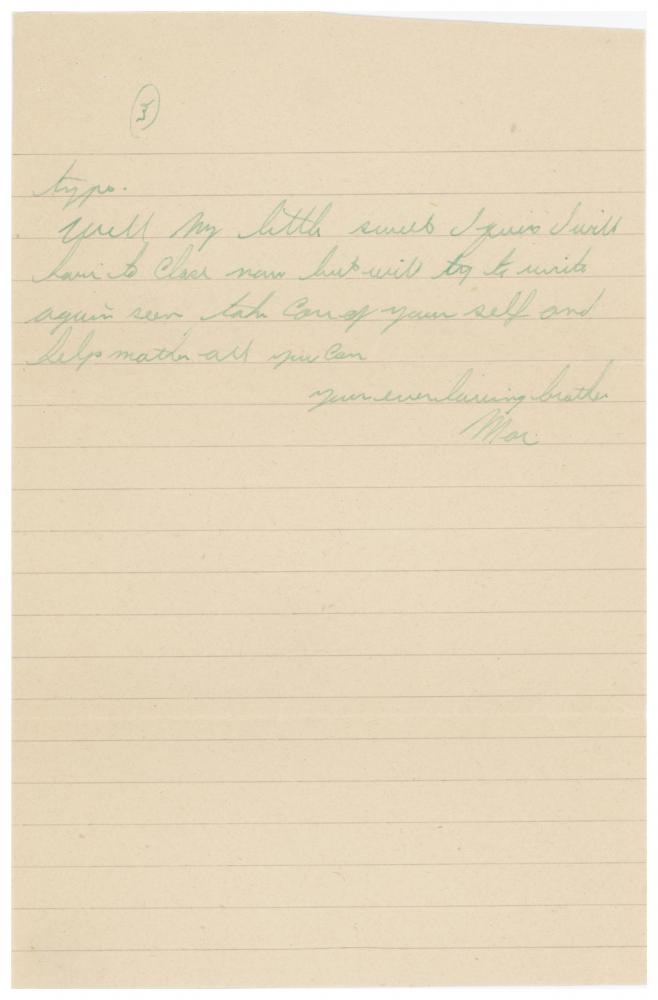 3
type.
Well my little sweet I guess I will
have to close now but will try to write
again soon take care of your self and
help mother all you can
your ever loving brother